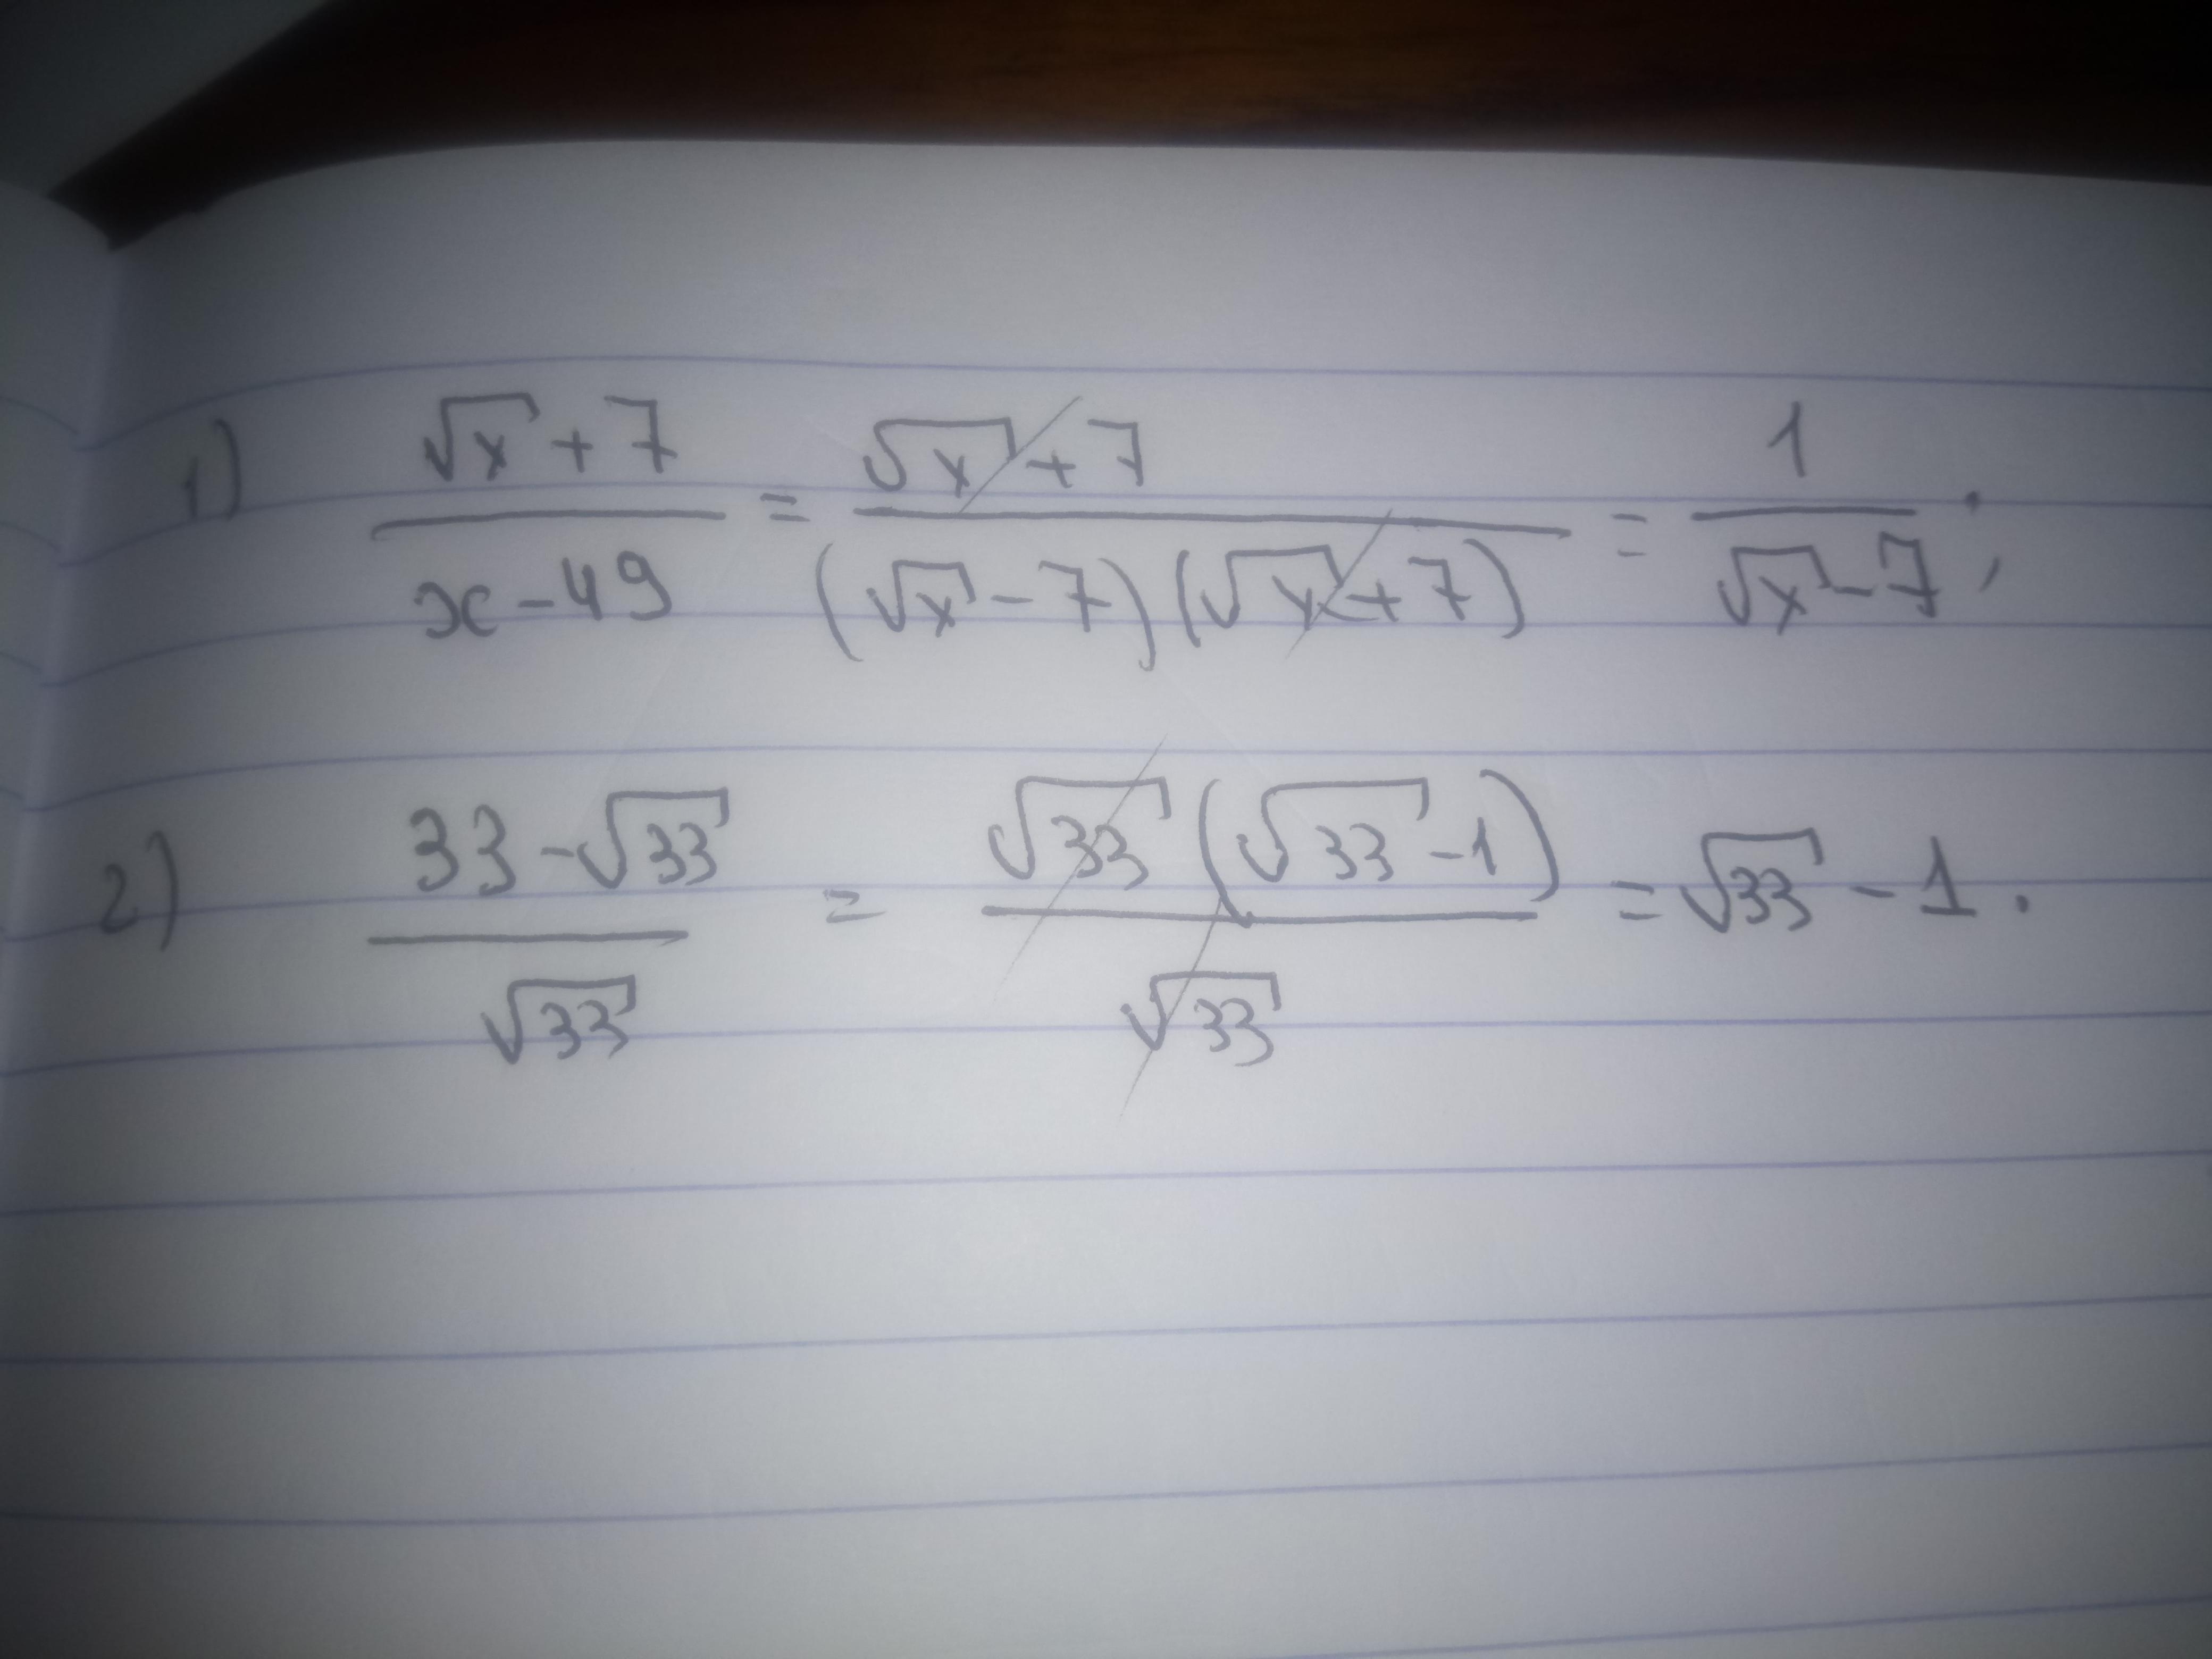 1) (√x + 7)/(x - 49) = (√x + 7)/((√x - 7)(√x + 7)) = 1/(√x - 7);
2) (33 - √33)/√33 = (√33(√33 - 1))/√33 = √33 - 1.